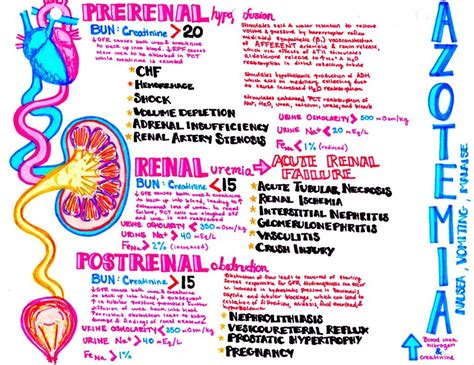 PRERENAL hypo fusion
BUN: Creatinine > 20
↓GFR causes both urea & creatinine
to back up into blood, ↓RPF causes
more urea reabsorption at PCT
while creatinine is excreted
* CHF
* HEMORRHAGE
* SHOCK
* VOLUME DEPLETION
* ADRENAL INSUFFICIENCY
* RENAL ARTERY STENOSIS
Stimulates salt & water retention to restore
volume & pressure by baroreceptor
mediated sympathetic vasoconstriction
of AFFERENT arterioles & renin release,
which via effects of ATII stimulates
aldosterone release to ↑Na⁺ & H₂O
reabsorption in distal collecting tubule
Stimulates hypothalamic production of ADH
which acts on medullary collecting duct
to cause increased H₂O reabsorption
Stimulates enhanced PCT reabsorption of
Na⁺, H₂O, urea, calcium, urate, and bicarb
URINE OSMOLARITY > 500 mOsm/kg
URINE Na⁺ < 20 mEq/L
FeNa < 1% (reduced)
RENAL uremia →
BUN: Creatinine < 15
↓GFR causes both urea & creatinine
to back up into blood, leading to ↑
increased loss of urea. In renal
failure, PCT cells are sloughed off
and urea is not reabsorbed
URINE OSMOLARITY < 350 mOsm/kg
URINE Na⁺ > 40 mEq/L
FeNa > 2% (increased)
ACUTE RENAL
FAILURE
* ACUTE TUBULAR NECROSIS
* RENAL ISCHEMIA
* INTERSTITIAL NEPHRITIS
* GLOMERULONEPHRITIS
* VASCULITIS
* CRUSH INJURY
POSTRENAL obstruction
BUN: Creatinine > 15
↓GFR causes both urea & creatinine
to back up into blood, leading to
increased tubular pressure
diffusion of urea back into blood.
Persistent obstruction leads to tubular
damage & reversal of renal reabsorb
URINE OSMOLARITY < 350 mOsm/kg
URINE Na⁺ > 40 mEq/L
FeNa > 1%
Obstruction of flow leads to reversal of starling
forces responsible for GFR. Hydronephrosis can occur
as increase in hydrostatic pressure is transmitted to
capsule and tubular blockage, which can lead to
* NEPHROLITHIASIS
* VESICOURETERAL REFLUX
* PROSTATIC HYPERTROPHY
* PREGNANCY
AZOTEMIA
NAUSEA, VOMITING, MALAISE
↑ Blood urea
nitrogen &
creatinine